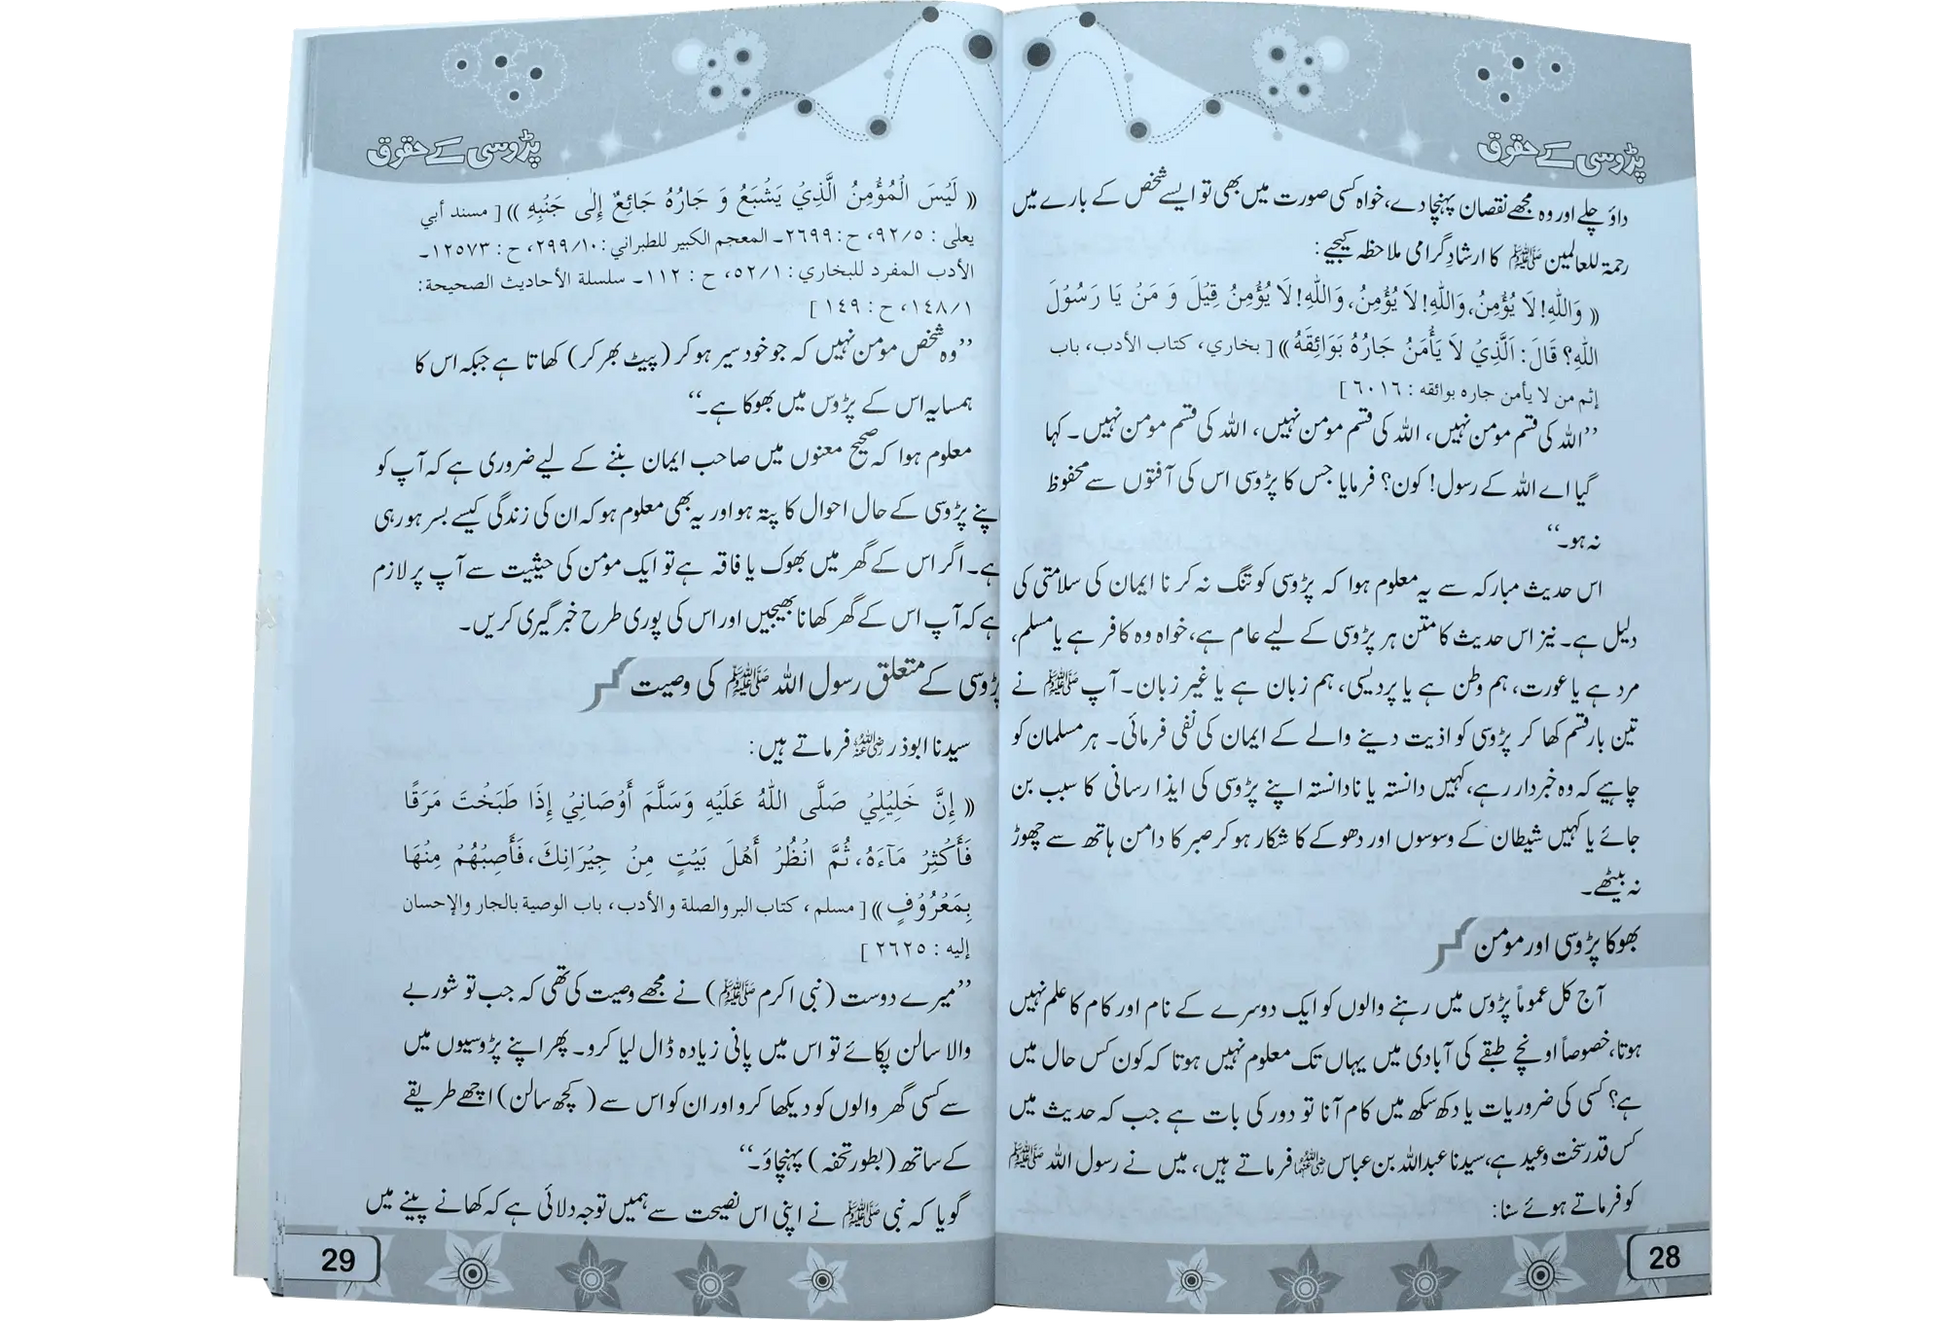 پڑوسی کے حقوق
داؤ چلے اور وہ مجھے نقصان پہنچا دے، خواہ کسی صورت میں بھی تو ایسے شخص کے بارے میں
رحمۃ للعالمین ﷺ کا ارشادِ گرامی ملاحظہ کیجیے:
(( وَاللّٰهِ! لاَ يُؤْمِنُ، وَاللّٰهِ! لاَ يُؤْمِنُ، وَاللّٰهِ! لاَ يُؤْمِنُ قِيْلَ وَ مَنْ يَا رَسُوْلَ
اللّٰهِ؟ قَالَ: اَلَّذِيْ لاَ يَأْمَنُ جَارُهُ بَوَائِقَهُ )) [ بخاري، كتاب الأدب، باب
إثم من لا يأمن جاره بوائقه : ٦٠١٦ ]
’’اللہ کی قسم مومن نہیں، اللہ کی قسم مومن نہیں، اللہ کی قسم مومن نہیں۔ کہا
گیا اے اللہ کے رسول! کون؟ فرمایا جس کا پڑوسی اس کی آفتوں سے محفوظ
نہ ہو۔‘‘
اس حدیث مبارکہ سے یہ معلوم ہوا کہ پڑوسی کو تنگ نہ کرنا ایمان کی سلامتی کی
دلیل ہے۔ نیز اس حدیث کا متن ہر پڑوسی کے لیے عام ہے، خواہ وہ کافر ہے یا مسلم،
مرد ہے یا عورت، ہم وطن ہے یا پردیسی، ہم زبان ہے یا غیر زبان۔ آپ ﷺ نے
تین بار قسم کھا کر پڑوسی کو اذیت دینے والے کے ایمان کی نفی فرمائی۔ ہر مسلمان کو
چاہیے کہ وہ خبردار رہے، کہیں دانستہ یا نادانستہ اپنے پڑوسی کی ایذا رسانی کا سبب بن
جائے یا کہیں شیطان کے وسوسوں اور دھوکے کا شکار ہو کر صبر کا دامن ہاتھ سے چھوڑ
نہ بیٹھے۔
بھوکا پڑوسی اور مومن
آج کل عموماً پڑوس میں رہنے والوں کو ایک دوسرے کے نام اور کام کا علم نہیں
ہوتا، خصوصاً اونچے طبقے کی آبادی میں یہاں تک معلوم نہیں ہوتا کہ کون کس حال میں
ہے؟ کسی کی ضروریات یا دکھ سکھ میں کام آنا تو دور کی بات ہے جب کہ حدیث میں
کس قدر سخت وعید ہے، سیدنا عبداللہ بن عباس رضی اللہ عنہما فرماتے ہیں، میں نے رسول اللہ ﷺ
کو فرماتے ہوئے سنا:
28
پڑوسی کے حقوق
(( لَيْسَ الْمُؤْمِنُ الَّذِيْ يَشْبَعُ وَ جَارُهُ جَائِعٌ إِلٰى جَنْبِهِ )) [ مسند أبي
يعلى : ٩٢/٥، ح : ٢٦٩٩۔ المعجم الكبير للطبراني : ٢٩٩/١٠، ح : ١٢٥٧٣۔
الأدب المفرد للبخاري : ٥٢/١، ح : ١١٢۔ سلسلة الأحاديث الصحيحة:
١٤٨/١، ح : ١٤٩ ]
’’وہ شخص مومن نہیں کہ جو خود سیر ہو کر (پیٹ بھر کر) کھاتا ہے جبکہ اس کا
ہمسایہ اس کے پڑوس میں بھوکا ہے۔‘‘
معلوم ہوا کہ صحیح معنوں میں صاحب ایمان بننے کے لیے ضروری ہے کہ آپ کو
اپنے پڑوسی کے حال احوال کا پتہ ہو اور یہ بھی معلوم ہو کہ ان کی زندگی کیسے بسر ہو رہی
ہے۔ اگر اس کے گھر میں بھوک یا فاقہ ہے تو ایک مومن کی حیثیت سے آپ پر لازم
ہے کہ آپ اس کے گھر کھانا بھیجیں اور اس کی پوری طرح خبر گیری کریں۔
پڑوسی کے متعلق رسول اللہ ﷺ کی وصیت
سیدنا ابوذر رضی اللہ عنہ فرماتے ہیں:
(( إِنَّ خَلِيْلِيْ صَلَّى اللّٰهُ عَلَيْهِ وَسَلَّمَ أَوْصَانِيْ إِذَا طَبَخْتَ مَرَقًا
فَأَكْثِرْ مَآءَهُ، ثُمَّ انْظُرْ أَهْلَ بَيْتٍ مِنْ جِيْرَانِكَ، فَأَصِبْهُمْ مِنْهَا
بِمَعْرُوْفٍ )) [ مسلم، كتاب البر والصلة و الأدب، باب الوصية بالجار والإحسان
إليه : ٢٦٢٥ ]
’’میرے دوست (نبی اکرم ﷺ) نے مجھے وصیت کی تھی کہ جب تو شوربے
والا سالن پکائے تو اس میں پانی زیادہ ڈال لیا کرو۔ پھر اپنے پڑوسیوں میں
سے کسی گھر والوں کو دیکھا کرو اور ان کو اس سے (کچھ سالن) اچھے طریقے
کے ساتھ (بطور تحفہ) پہنچاؤ۔‘‘
گویا کہ نبی ﷺ نے اپنی اس نصیحت سے ہمیں توجہ دلائی ہے کہ کھانے پینے میں
29